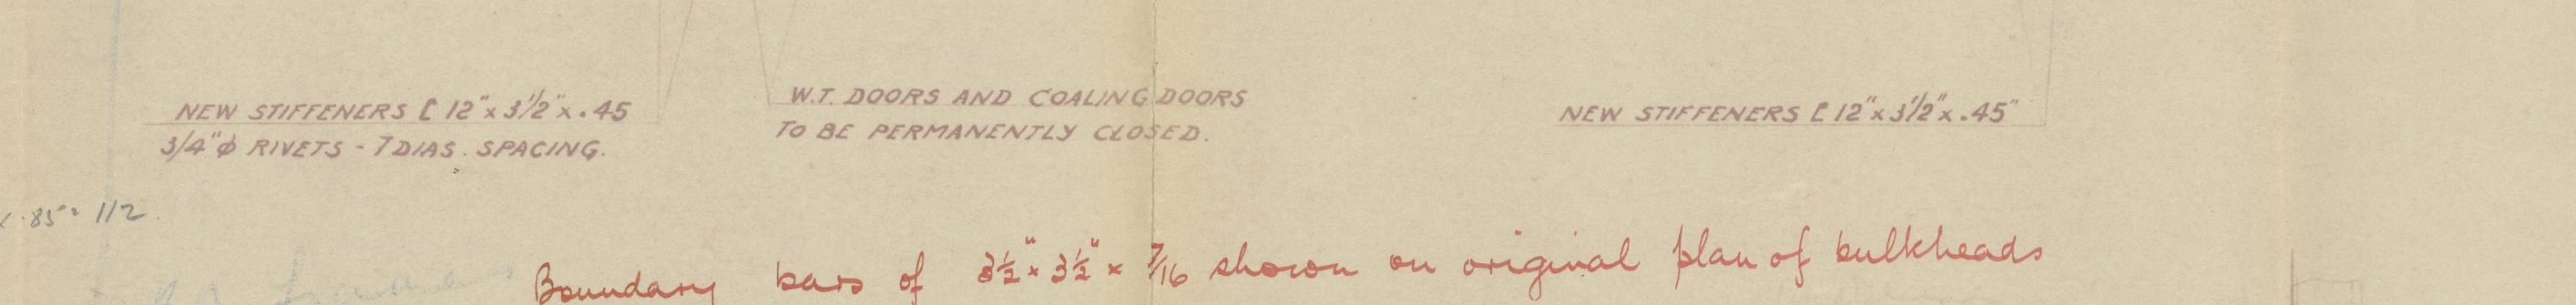 NEW STIFFENERS [ 12" x 3 1/2" x .45
3/4" ϕ RIVETS - 7 DIAS. SPACING.
W.T. DOORS AND COALING DOORS
TO BE PERMANENTLY CLOSED.
NEW STIFFENERS [ 12" x 3 1/2" x .45"
x .85 = 112
Boundary bars of 3½" x 3½" x 7/16 shown on original plan of bulkheads